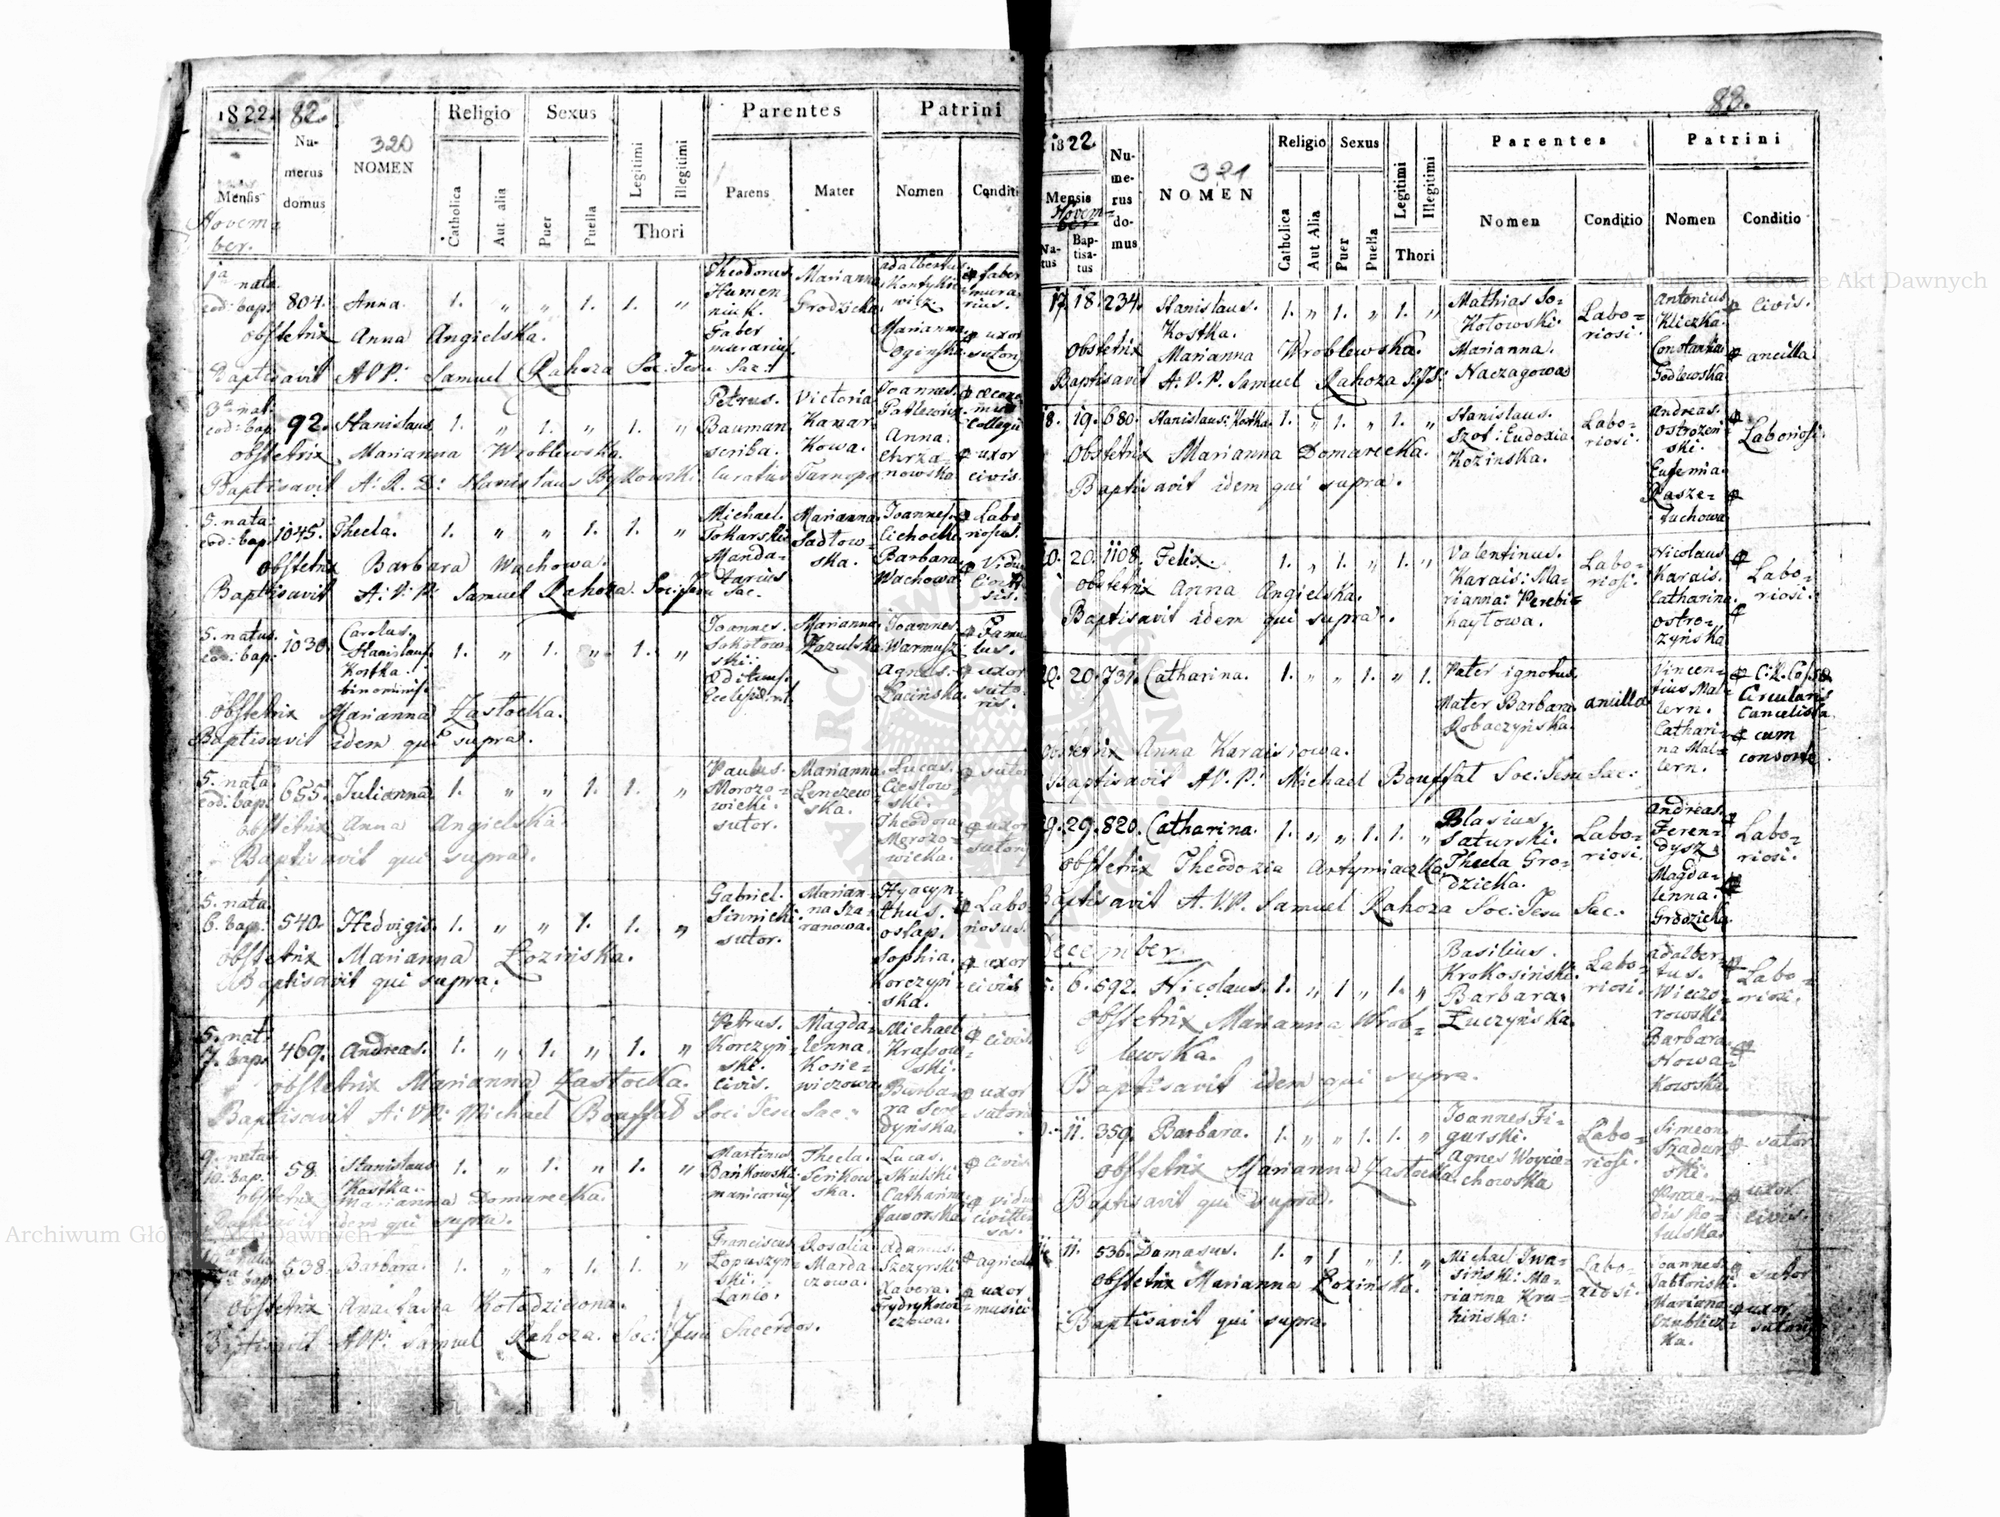 1822. 82.
320
Religio Sexus Parentes Patrini
Numerus domus
NOMEN
Mensis
Catholica Aut alia Puer Puella Legitimi Illegitimi
Thori
Parens Mater Nomen Conditio
Novem
ber.
1a nata
eod: bap: 804. Anna. 1. " " 1. 1. "
Theodorus
Humen-
niuk.
Faber
murarius.
Marianna
Grodzicka.
Adalbertus
wicz.
Marianna
Oginska.
faber
mura-
rius.
uxor
sutoris
obstetrix Anna Angielska.
Baptisavit A.V.P: Samuel Rahoza Soc: Jesu Sac:
3a nat.
eod: bap. 92. Stanislaus 1. " 1. " 1. "
Petrus.
Bauman
scriba.
Victoria
Kanar-
kowa.
Joannes.
Anna.
Chrza-
nowska
Collegii
uxor
civis.
obstetrix Marianna Wroblewska.
Baptisavit A. R. D: Stanislaus Bykowski Curatus Tarnopo.
5. nata
eod: bap. 1045. Thecla. 1. " " 1. 1. "
Michael.
Tokarski
Manda-
tarius
Marianna
Sadlow-
ska.
Joannes.
Cichocki
Barbara
Wachowa
Labo-
riosus.
obstetrix Barbara Wachowa.
Baptisavit A: V: P: Samuel Rahoza Soc: Jesu Sac.
5. natus
eod: bap: 1030. Carolus
Stanislaus
Kostka.
binominis.
1. " 1. " 1. "
Joannes.
Sokołow-
ski:
Marianna
Kazulska
Joannes.
Warmusz
Agnes.
Lacińska.
Famu-
lus.
uxor
suto-
ris.
obstetrix Marianna Zastocka.
Baptisavit idem qui supra.
5. nata
eod: bap: 655. Julianna. 1. " " 1. 1. "
Paulus.
Morozo-
wicki.
sutor.
Marianna
Lenczew-
ska.
Lucas.
Cieslow-
ski.
Theodora
Morozo-
wicka.
sutor
uxor
sutoris
obstetrix Anna Angielska.
Baptisavit qui supra.
5. nata
6. bap: 540. Hedvigis. 1. " " 1. 1. "
Gabriel.
Sinnicki.
sutor.
Marian-
na Sza-
ranowa.
Hyacyn-
thus.
Ostap.
Sophia.
Korczyń-
ska.
Labo-
riosus.
uxor
civis
obstetrix Marianna Łozińska.
Baptisavit qui supra.
5. nat.
7. bap. 469. Andreas. 1. " 1. " 1. "
Petrus.
Korczyń-
ski.
civis.
Magda-
lenna.
Kosie-
wiczowa
Michael
Krassow-
ski.
Barba-
ra
civis
uxor
sutoris
obstetrix Marianna Zastocka.
Baptisavit A: V.P: Michael Bouffał Soc: Jesu Sac:
9. nata
10. bap. 58. Stanislaus
Kostka.
1. " 1. " 1. "
Martinus
Bańkowski
manicarius
Thecla.
Senkow-
ska.
Lucas.
Skulski
Catharina
Jaworska
civis.
obstetrix Marianna Domarecka.
idem qui supra.
538. Barbara. 1. " " 1. 1. "
Franciscus
Łopuszyń-
ski.
Lanio.
Rosalia
Marda-
rzowa.
Adamus.
Szczyrski
Xavera.
agricola
uxor
musici
obstetrix Anastasia Kołodzieiona.
Baptisavit A.V.P: Samuel Rahoza. Soc: Jesu Sacerdos.
83.
1822.
321
Religio Sexus Parentes Patrini
Numerus domus
NOMEN
Mensis
Novem-
ber
Natus Baptisatus
Catholica Aut Alia Puer Puella Legitimi Illegitimi
Thori
Nomen Conditio Nomen Conditio
17. 18. 234. Stanislaus.
Kostka.
1. " 1. " 1. "
Mathias So-
kołowski.
Marianna.
Naczagowa
Labo-
riosi.
Antonius
Kliczka.
Constantia
Godlewska.
civis.
ancilla
Obstetrix Marianna Wroblewska.
Baptisavit A. V. P. Samuel Rahoza S.J.S:
18. 19. 680. Stanislaus: Kostka. 1. " 1. " 1. "
Stanislaus.
Szot: Eudoxia.
Kozinska.
Labo-
riosi.
Andreas.
Ostrozen-
ski.
Eugenia.
Kasze-
luchowa
Laboriosi.
Obstetrix Marianna Domarecka.
Baptisavit idem qui supra.
20. 1108. Felix. 1. " 1. " 1. "
Valentinus.
Karais: Ma-
rianna: Perebi-
haytowa.
Labo-
riosi.
Nicolaus
Karais.
Catharina.
Ostro-
zyńska
Labo-
riosi.
obstetrix Anna Angielska.
Baptisavit idem qui supra.
20. 20. 731. Catharina. 1. " " 1. " 1.
Pater ignotus.
Mater Barbara
Robaczyńska.
ancilla
Vincen-
tius Mal-
lern.
Cathari-
na Mal-
lern.
Circularis
Cancelista.
cum
consorte.
Obstetrix Anna Karaisiowa.
Baptisavit A.V.P: Michael Bouffał Soc: Jesu Sac:
29. 29. 820. Catharina. 1. " " 1. 1. "
Blasius
Saturski.
Thecla Gro-
dzicka.
Labo-
riosi.
Andreas.
Feren-
dysz
Magda-
lenna.
Grodzicka
Labo-
riosi.
obstetrix Theodozia Artymiacka
Baptisavit A.V.P. Samuel Rahoza Soc: Jesu Sac.
December.
6. 592. Nicolaus. 1. " 1 " 1. "
Basilius.
Krokosiński.
Barbara.
Łuczyńska.
Labo-
riosi.
Adalber-
tus.
Wieczo-
rowski.
Barbara
Nowa-
kowska.
Labo-
riosi.
obstetrix Marianna Wrob-
lewska.
Baptisavit idem qui supra.
11. 359. Barbara. 1. " " 1. 1. "
Joannes Fi-
gurski.
Agnes Woycie-
chowska
Labo-
riosi.
Simeon
Szadur-
ski.
sutor
uxor
civis.
obstetrix Marianna Zastocka.
Baptisavit qui supra.
11. 536. Damasus. 1. " 1 " 1. "
Michael Iwa-
siński: Ma-
rianna Kru-
hińska:
Labo-
riosi.
Joannes
Jabłoński
Marianna
sutor
uxor
sutoris
obstetrix Marianna Łozińska.
Baptisavit qui supra.
Archiwum Główne Akt Dawnych
Archiwum Główne Akt Dawnych